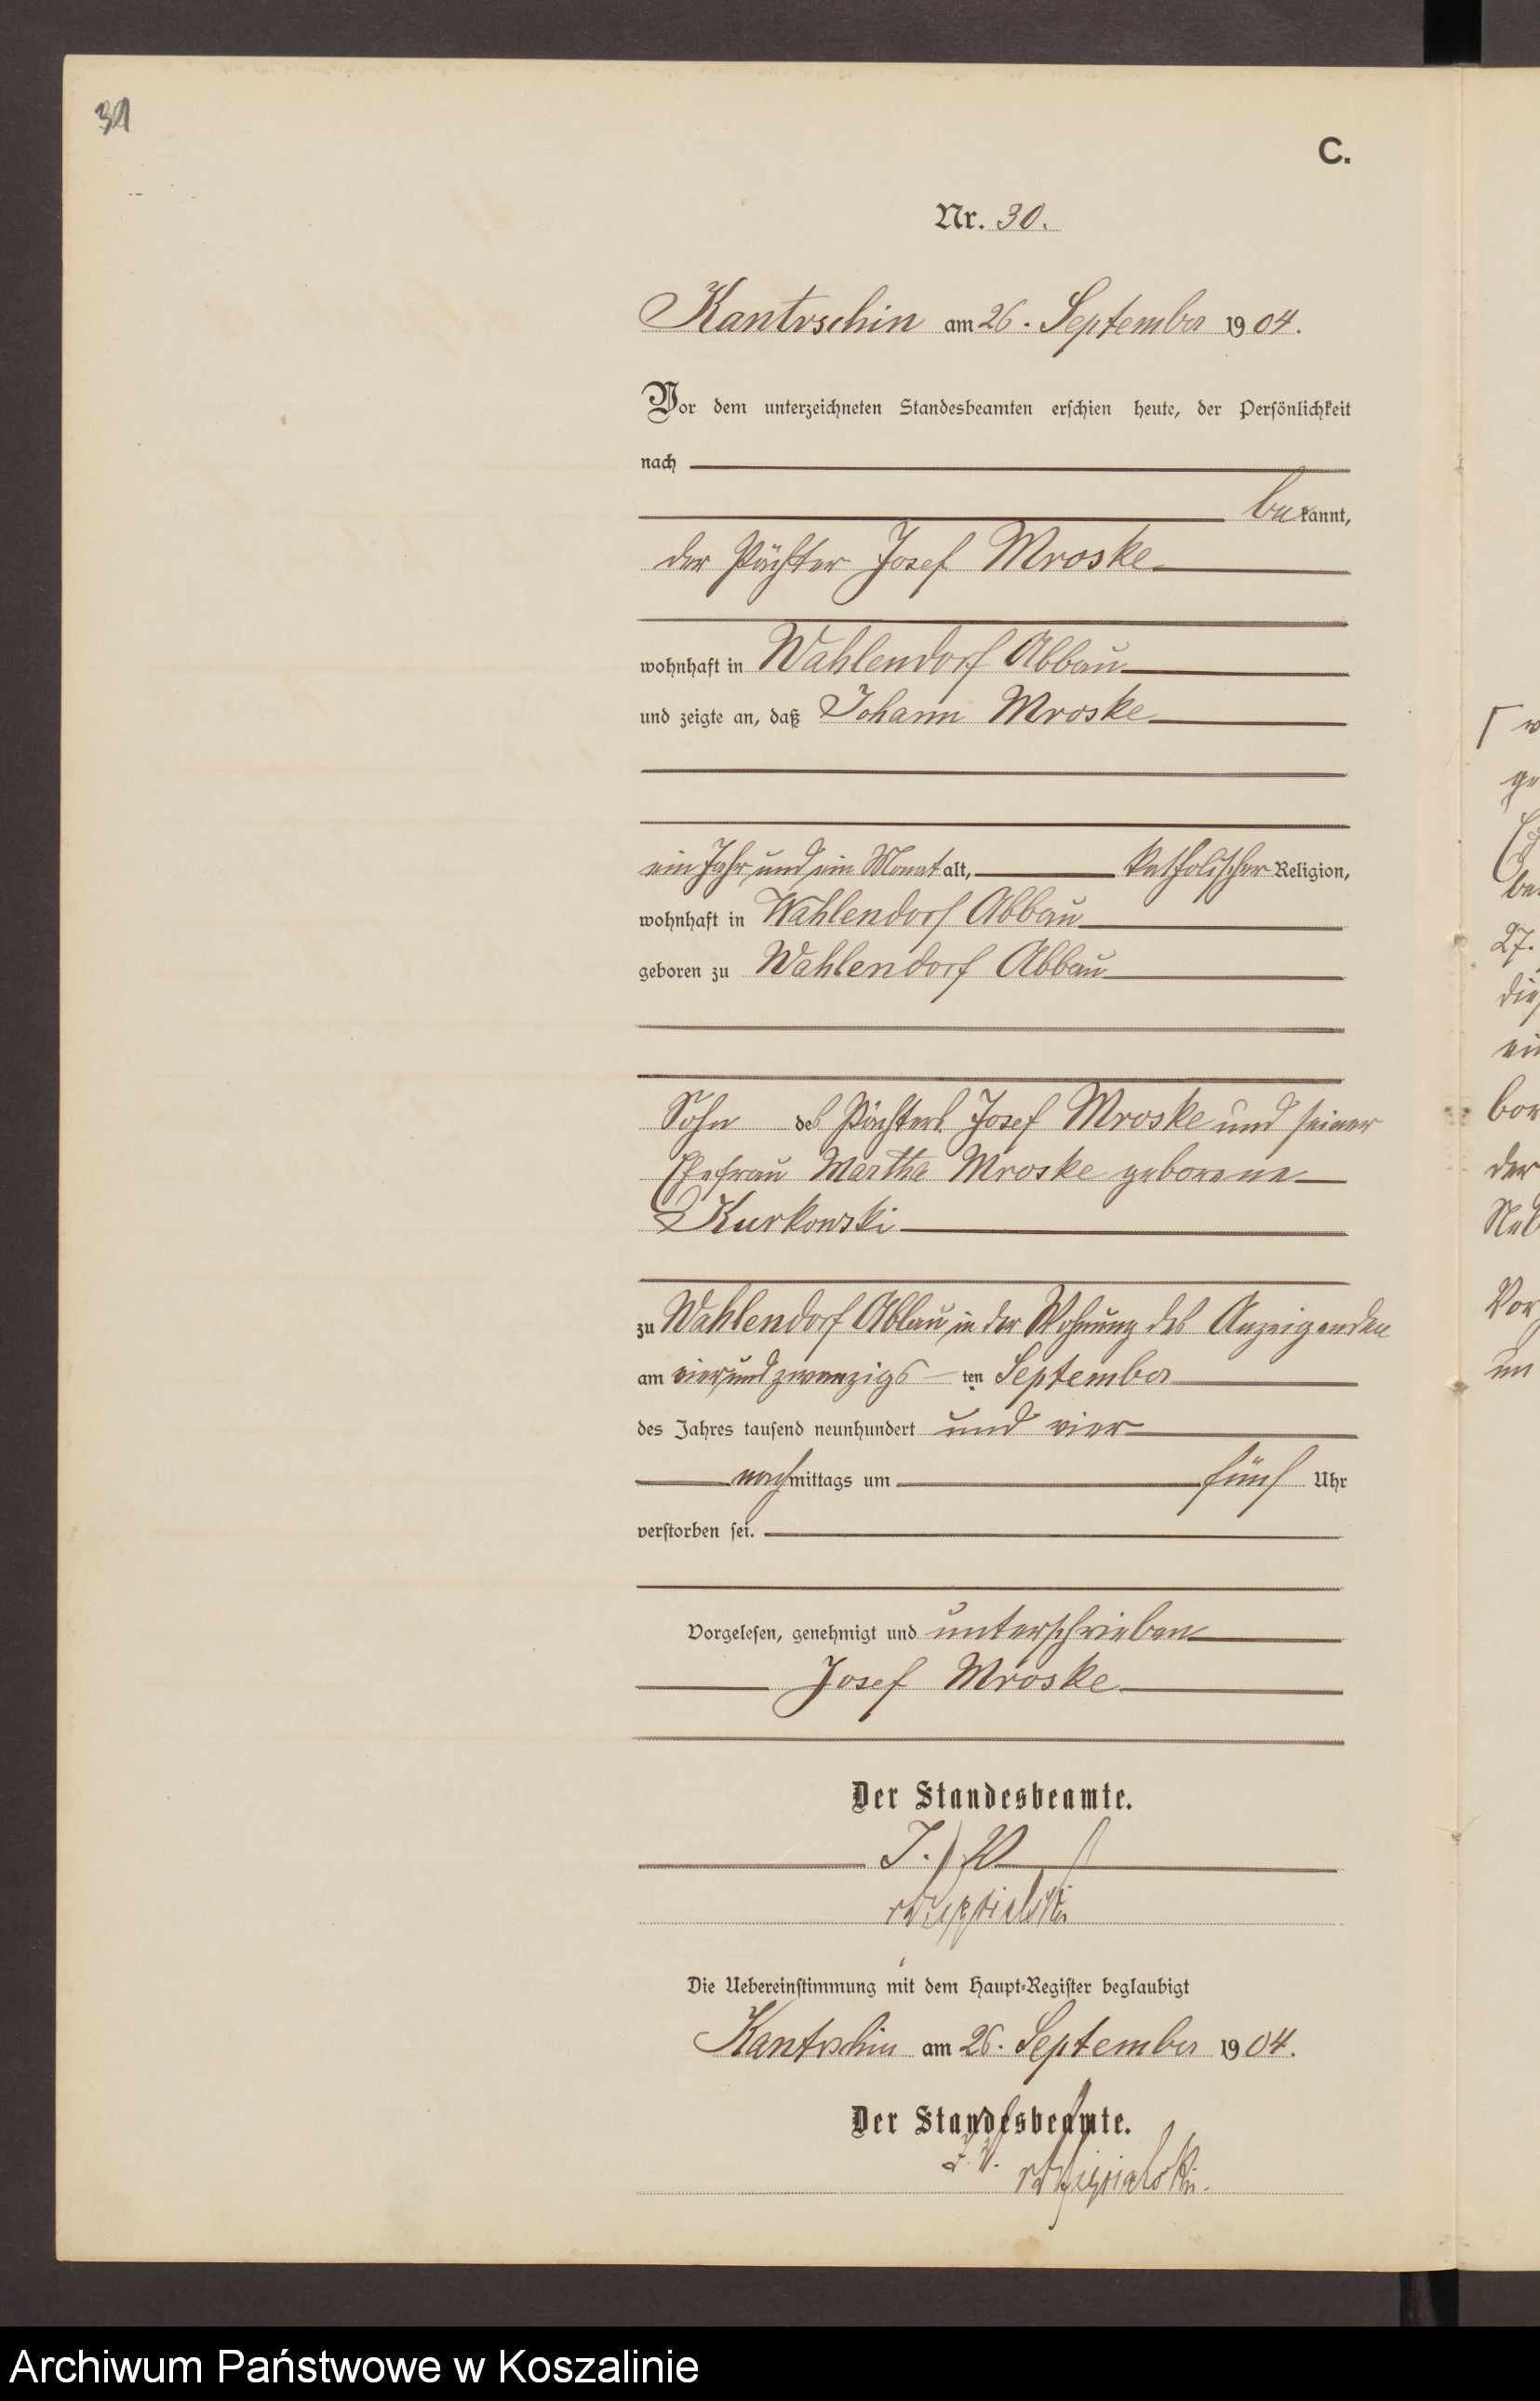 C.
Nr. 30.
Kantrschin am 26. September 1904.
Vor dem unterzeichneten Standesbeamten erschien heute, der Persönlichkeit
nach
bekannt,
der Pächter Josef Mroske
wohnhaft in Wahlendorf Abbau
und zeigte an, daß Johann Mroske
ein Jahr und ein Monat alt, katholischer Religion,
wohnhaft in Wahlendorf Abbau
geboren zu Wahlendorf Abbau
Sohn des Pächters Josef Mroske und seiner
Ehefrau Martha Mroske geborene
Kurkowski
zu Wahlendorf Abbau in der Wohnung des Anzeigenden
am vierundzwanzigsten September
des Jahres tausend neunhundert und vier
nachmittags um fünf Uhr
verstorben sei.
Vorgelesen, genehmigt und unterschrieben
Josef Mroske
Der Standesbeamte.
J. V.
Die Uebereinstimmung mit dem Haupt-Register beglaubigt
Kantrschin am 26. September 1904.
Der Standesbeamte.
J. V.
Archiwum Państwowe w Koszalinie